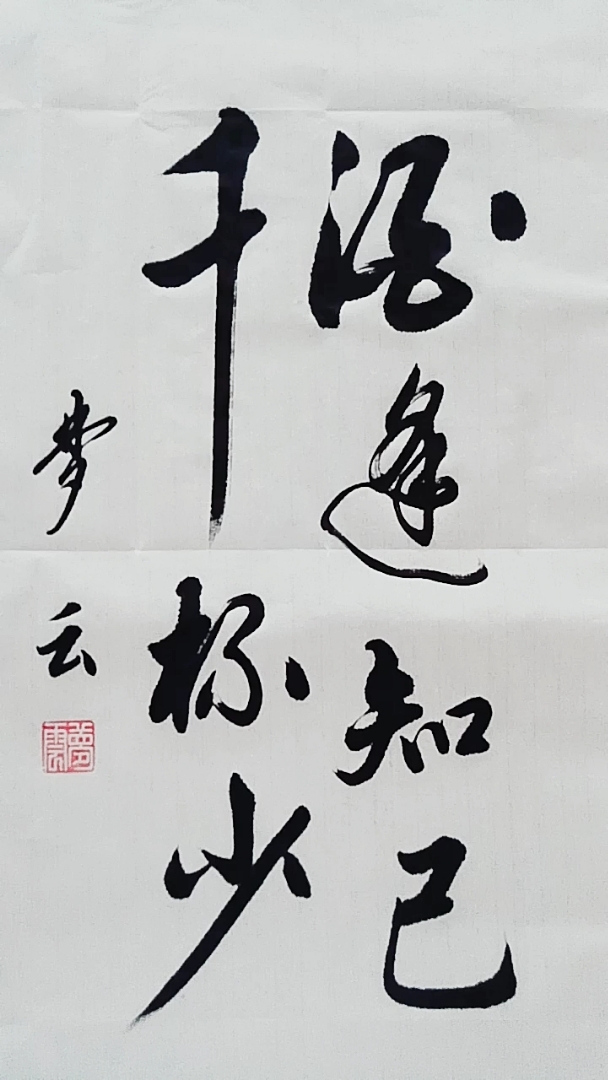 酒逢知己
千杯少
梦云
夢雲